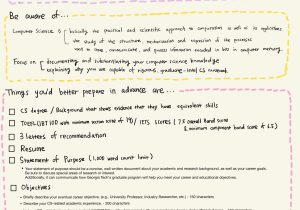 Be aware of...
Computer Science is basically, the practical and scientific approach to computation as well as its applications
the study of the structure, mechanization and expression of the processes
used to store, communicate, and process information encoded in bits in computer memory.
Focus on documenting and substantiating your computer science knowledge
explaining why you are capable of rigorous, graduate-level CS coursework
Things you'd better prepare in advance are...
CS degree / Background that shows evidence that they have equivalent skills
TOEFL iBT 100 with minimum section score of 19 / IELTS scores (7.5 overall band score
& minimum component band score of 6.5)
3 letters of recommendation
Resume
Statement of Purpose (1,000 word count limit)
* Your statement of purpose should be a concise, well-written document about your academic and research background, as well as career goals.
Be sure to discuss areas of research or statistical interest.
Additionally, it can communicate how Georgia Tech's graduate program will help you meet your career and educational objectives.
Objectives
- Briefly describe your eventual career objective (e.g., University Professor, Industry Researcher, etc.) - 150 characters
- Describe your CS-related academic experience - 300 characters